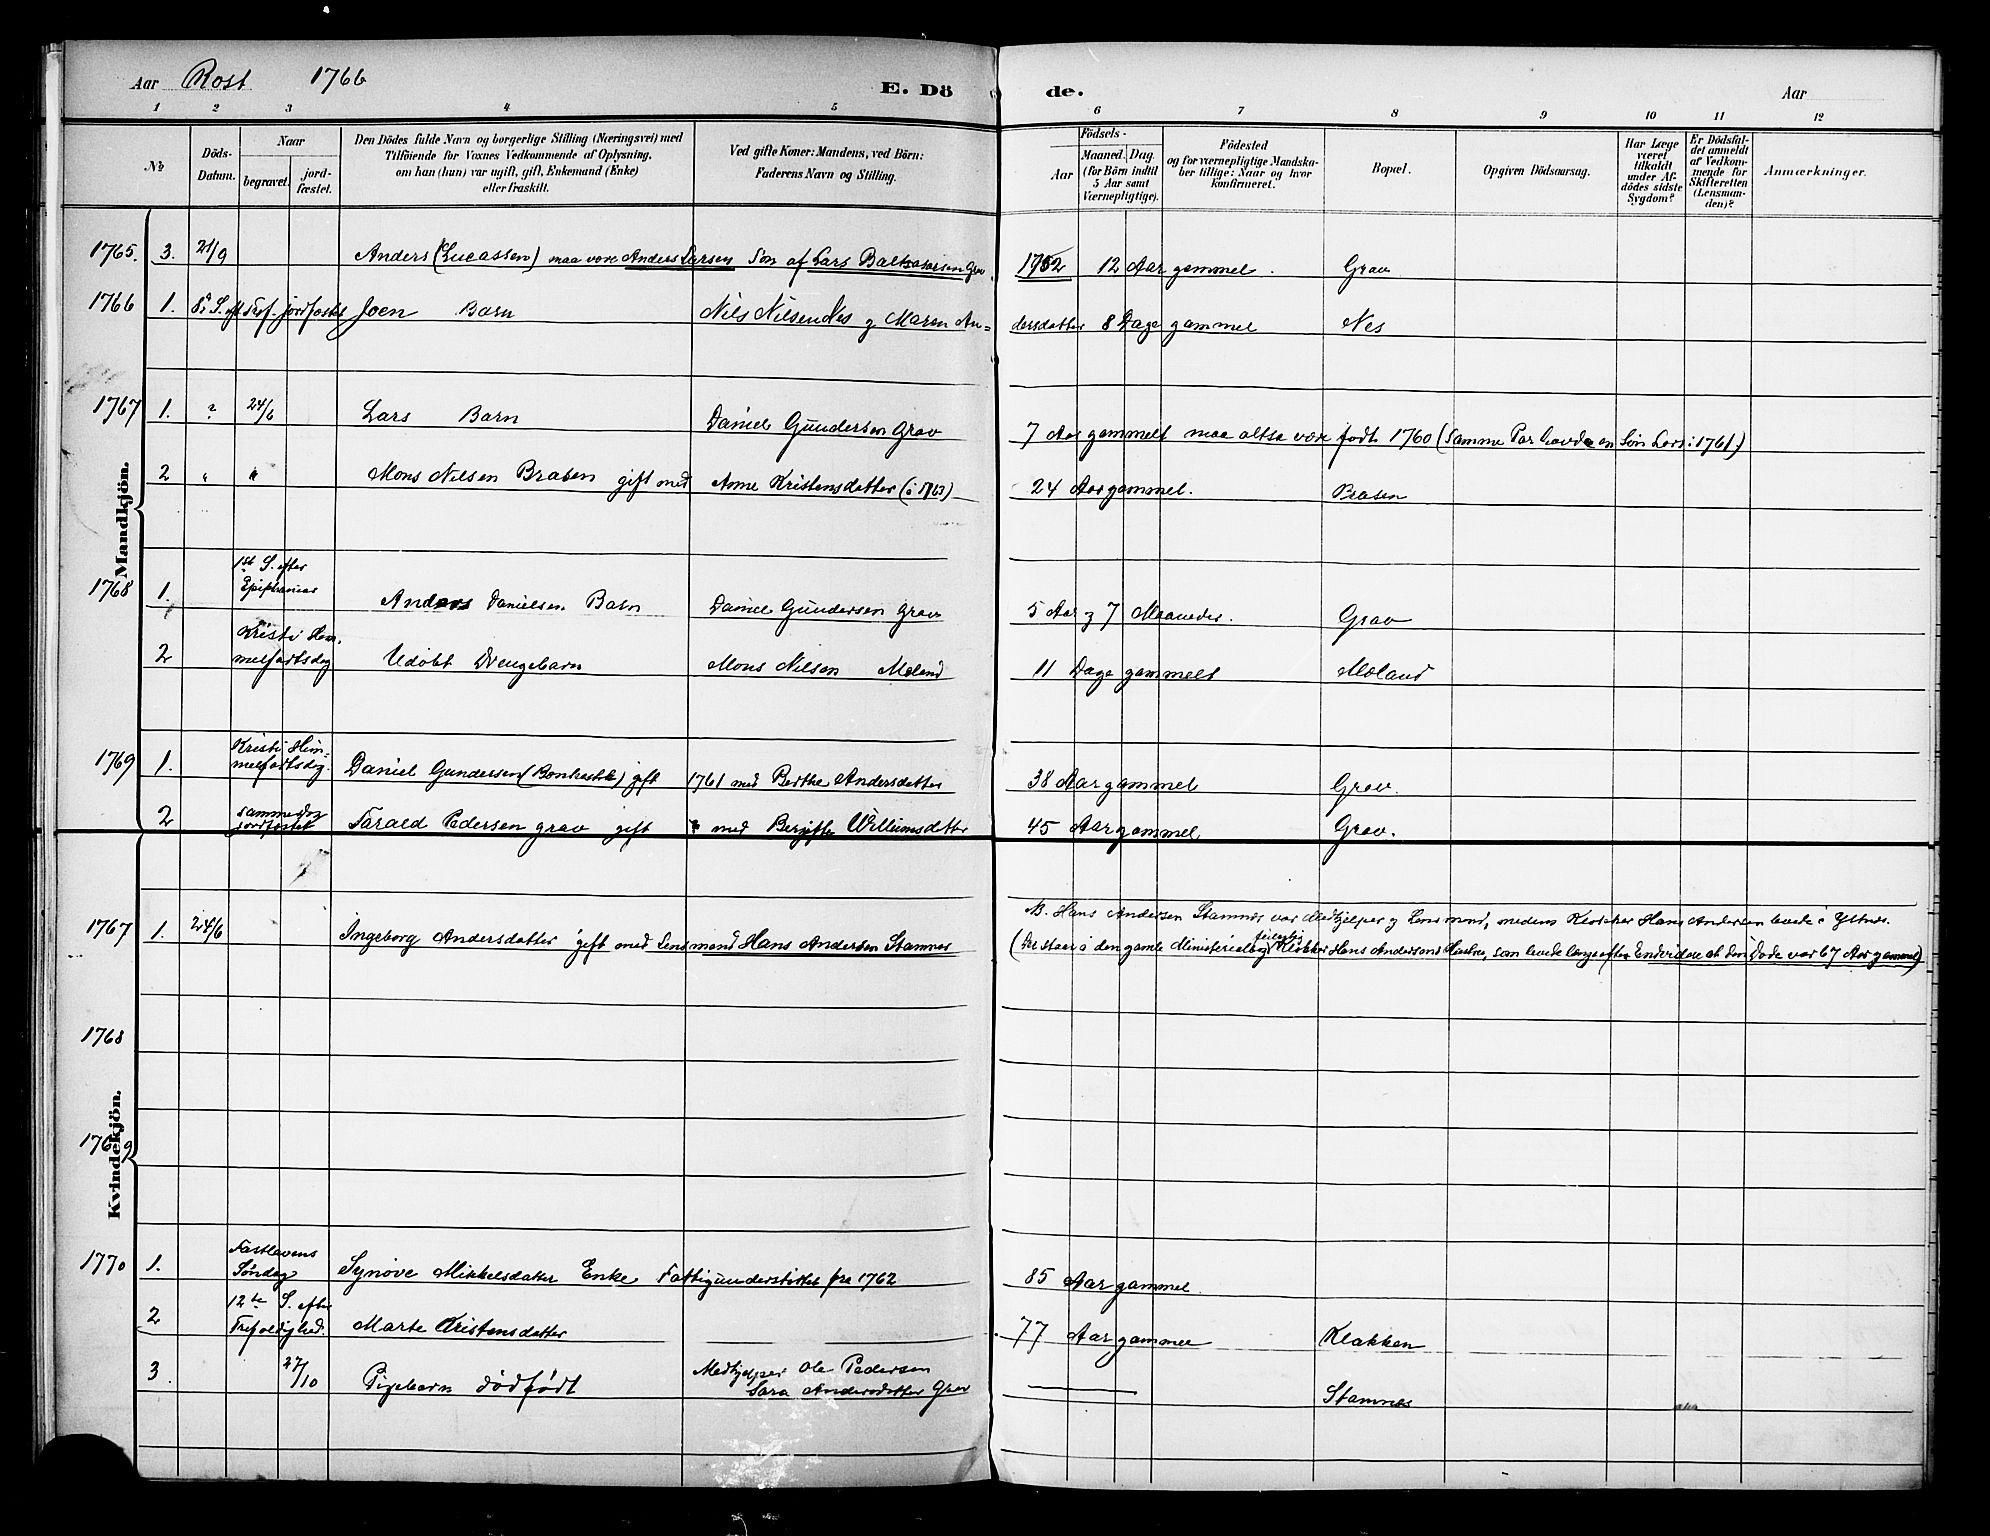 Aar Röst 1766
E. Dö
de.
Aar
1 2 3 4 5
6 7 8 9 10 11 12
No
Döds-
Datum.
Naar
begravet.
jord-
fæstet.
Den Dödes fulde Navn og borgerlige Stilling (Næringsvei) med
Tilföiende for Voxnes Vedkommende af Oplysning,
om han (hun) var ugift, gift, Enkemand (Enke)
eller fraskilt.
Ved gifte Koner: Mandens, ved Börn:
Faderens Navn og Stilling.
Födsels-
Aar
Maaned.
Dag.
(for Börn indtil
5 Aar samt
Værnepligtige).
Födested
og for værnepligtige Mandska-
ber tillige: Naar og hvor
konfirmeret.
Bopæl.
Opgiven Dödsaarsag.
Har Læge
været
tilkaldt
under Af-
dödes sidste
Sygdom?
Er Dödsfal-
det anmeldt
af Vedkom-
mende for
Skifteretten
(Lensman-
den)?
Anmærkninger.
Mandkjön.
1765. 3. 21/9 Anders (Lucassen) maa være Anders Larsen Søn af Lars Baltzarsen Grav 1752 12 Aar gammel. Grav
1766 1. 8. S. eft Tref. jordfæstet Joen Barn Nils Nilsen Nes g Maren An=dersdatter 8 Dage gammel Nes
1767 1. " 24/6 Lars Barn Daniel Gundersen Grav 7 Aar gammelt maa altsa vær født 1760 (Samme Par havde en Søn Lars i 1761.)
2 " " Mons Nilsen Brasen gift med Anne Kristensdatter (i 1763) 24 Aar gammel. Brasen
1ste S. efter
1768 1. Epiphanias Anders Danielsen Barn Daniel Gundersen Grav 5 Aar g 7 Maaneder. Grav
Kristi Him-
2 melfartsdag Udøbt Drengebarn Mons Nilsen Moland 11 Dage gammelt Moland
Kristi Him=
1769 1. melfartsdag. Daniel Gundersen gift 1761 med Berthe Andersdatter 38 Aar gammel Grav.
samme Dag
2 jordfæstet Tarald Pedersen grav gift med Bergitte Williumsdatter 45 Aar gammel Grav.
Kvindekjön.
NB. Hans Andersen Stamnes var Medhjelper g Lensmand, medens Klokker Hans Andersen levede i Ystnes.
1767 1. 24/6 Ingeborg Andersdatter gift med Lensmand Hans Andersen Stamnes (Der staar i den gamle Ministerialbog feilagtig Klokker Hans Andersens Hustru, som levede længe efter. Endvidere at den Døde var 67 Aar gammel)
1768
1769
Fastelavens
1770 1. Søndag Synøve Mikkelsdatter Enke Fattigunderstøttet fra 1762 85 Aar gammel.
12te S. efter
2 Trefoldighed. Marte Kristensdatter 77 Aar gammel Klakken
3. 27/10 Pigebarn dødfødt Medhjelper Ole Pedersen
Sara Andersdatter Grav Stamnes